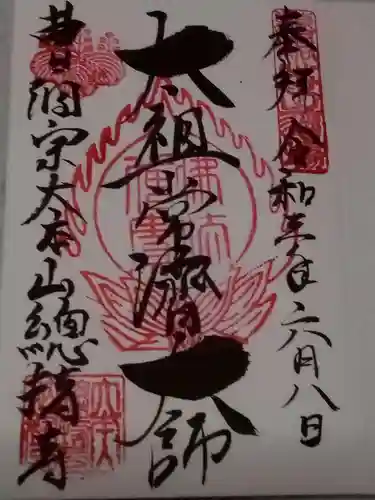 奉拝 令和三年六月八日
太祖常濟大師
曹洞宗大本山總持寺
佛法僧寶